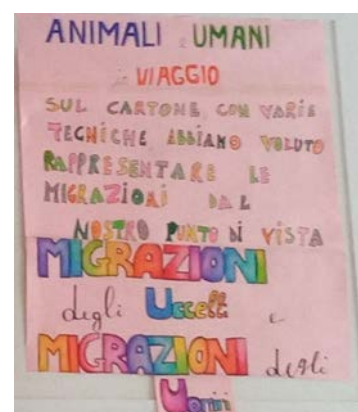 ANIMALI e UMANI
in VIAGGIO
SUL CARTONE, CON VARIE
TECNICHE ABBIAMO VOLUTO
RAPPRESENTARE LE
MIGRAZIONI DAL
NOSTRO PUNTO DI VISTA
MIGRAZIONI
degli Uccelli e
MIGRAZIONI degli
Uomini